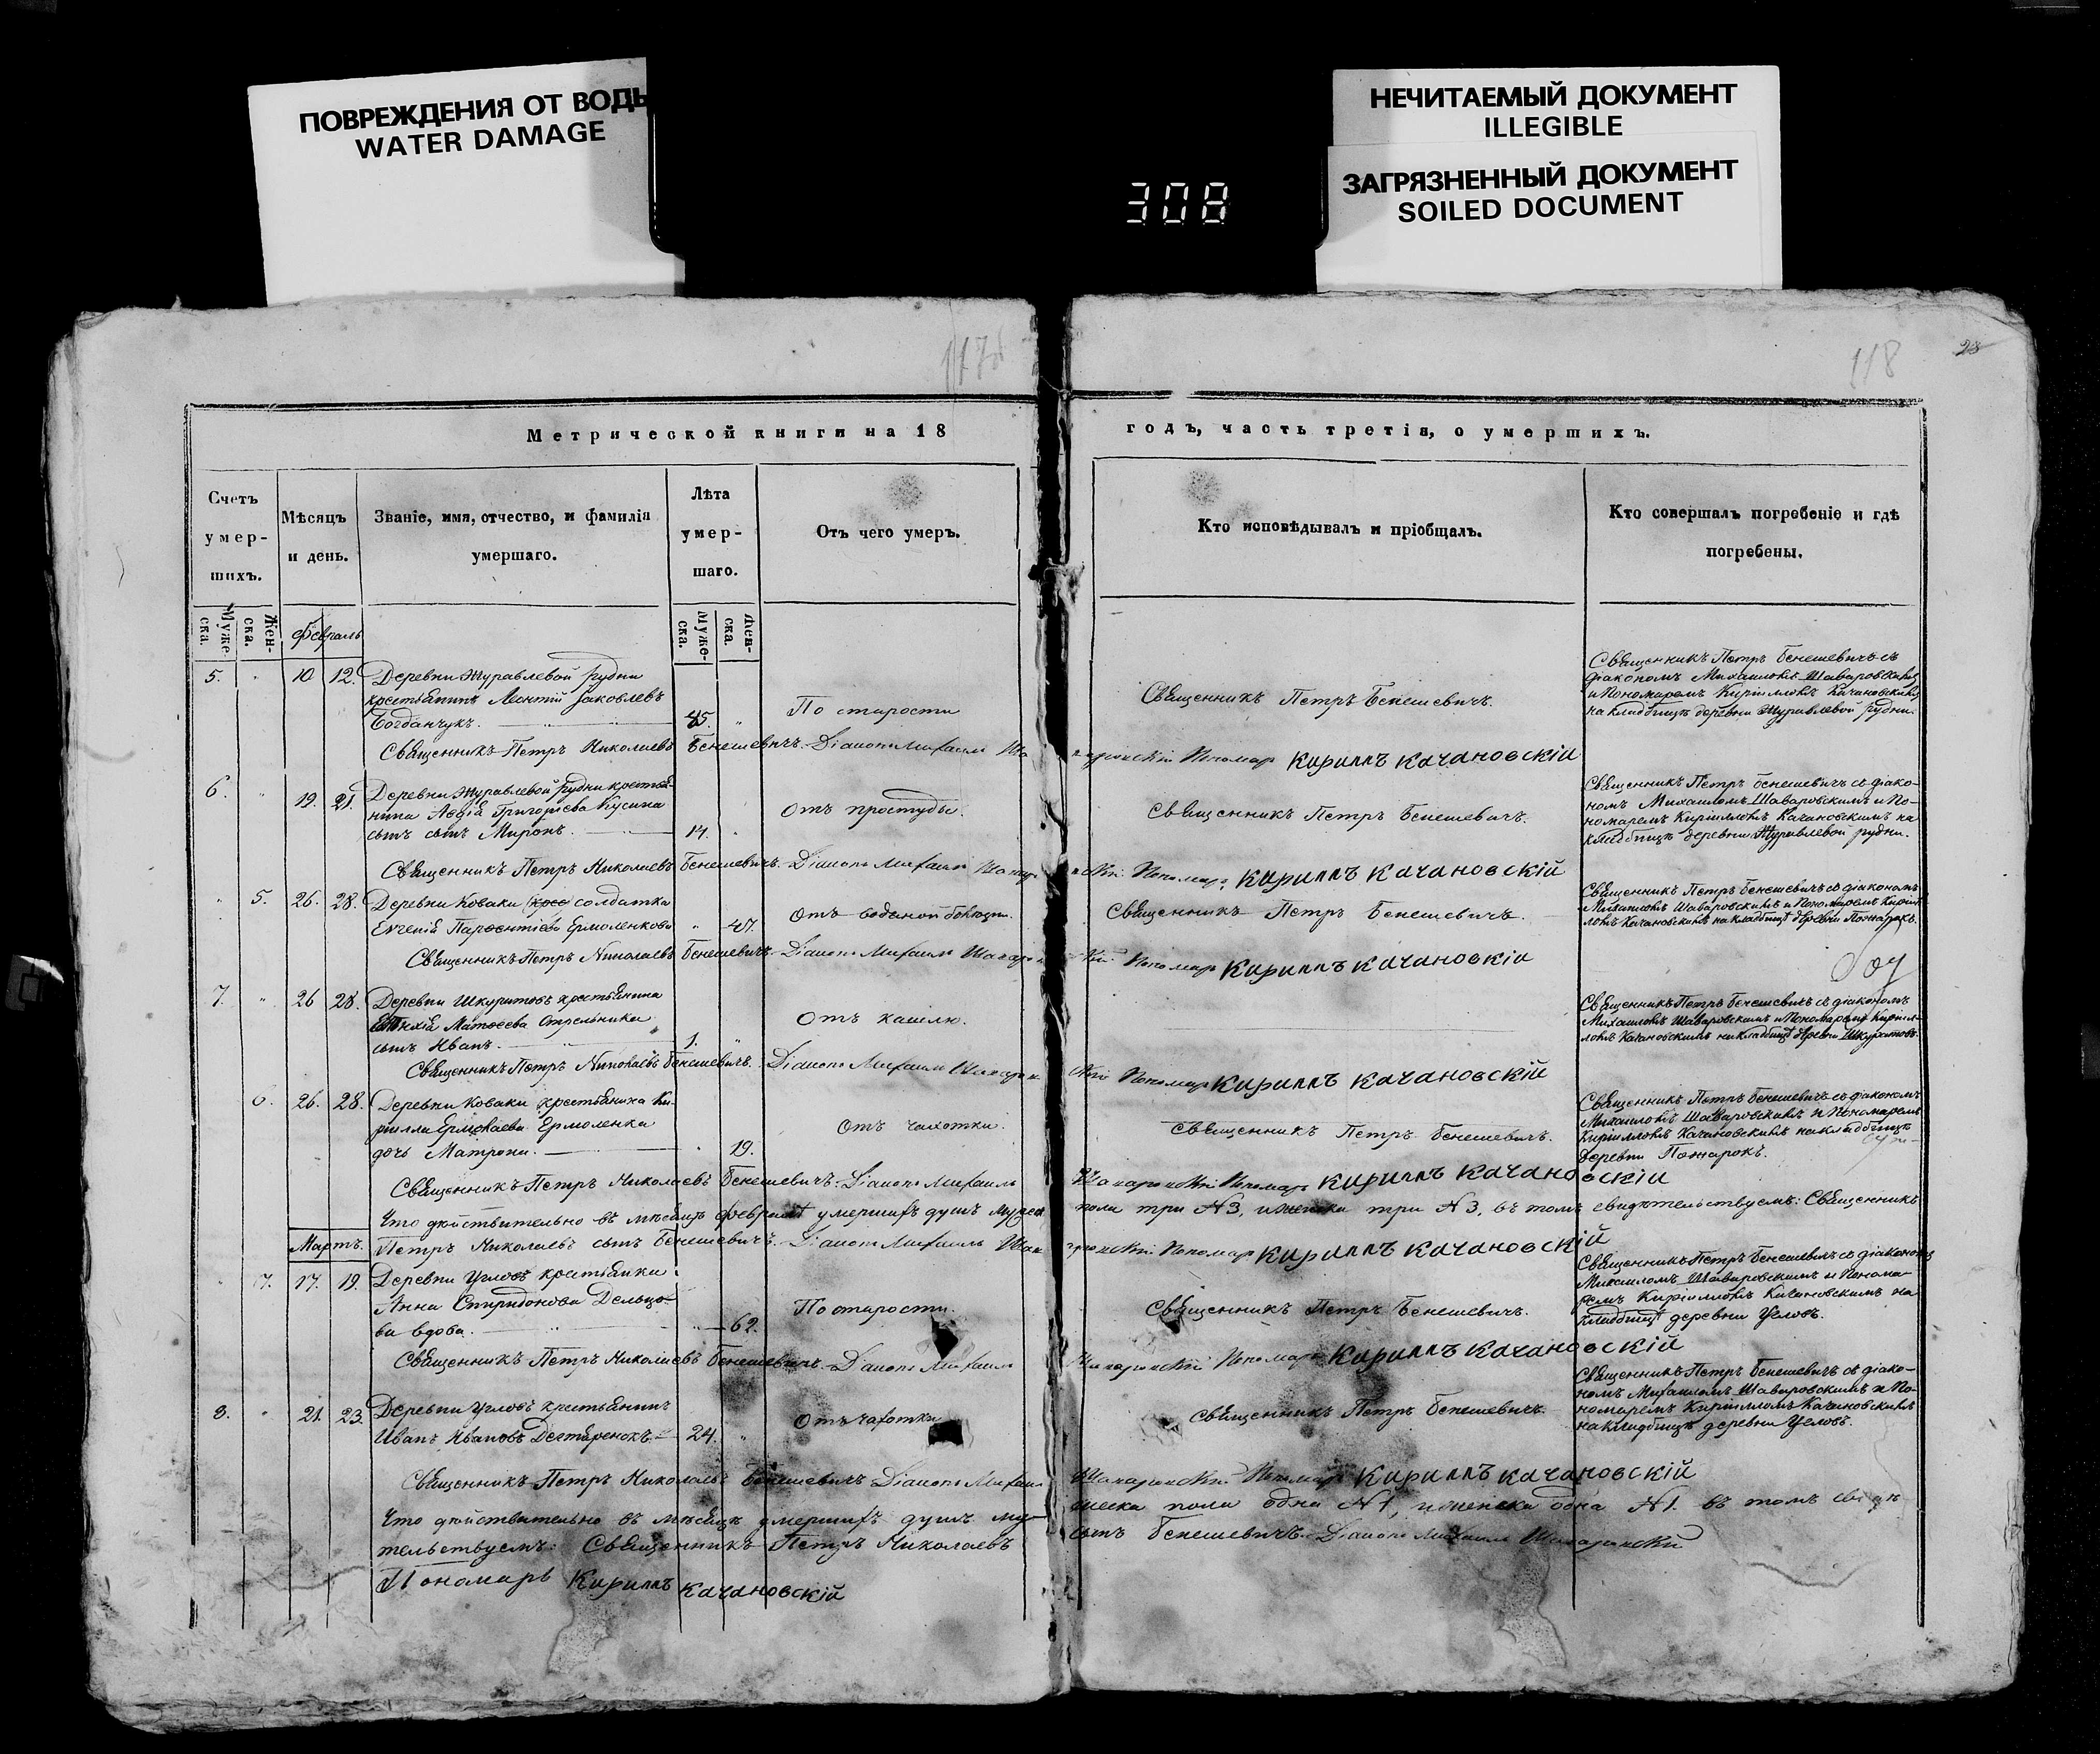 ПОВРЕЖДЕНИЯ ОТ ВОДЫ
WATER DAMAGE
НЕЧИТАЕМЫЙ ДОКУМЕНТ
ILLEGIBLE
ЗАГРЯЗНЕННЫЙ ДОКУМЕНТ
SOILED DOCUMENT
308
117
118
28
Метрической книги на 18
годъ, часть третія, о умершихъ.
Счетъ
умер-
шихъ.
Мѣсяцъ
и день.
Званіе, имя, отчество, и фамилія
умершаго.
Лѣта
умер-
шаго.
Отъ чего умеръ.
Кто исповѣдывалъ и пріобщалъ.
Кто совершалъ погребеніе и гдѣ
погребены.
Муже-
ска.
Жен-
ска.
Муже-
ска.
Жен-
ска.
Февраль
5. 10 12. Деревни Журавлевой рудни
крестьянинъ Леонтій Іаковлевъ
Богданчукъ.
По старости
Священникъ Петръ Бенешевичъ.
Священникъ Петръ Бенешевичъ съ
діакономъ Михаиломъ Шаваровскимъ
и Пономаремъ Кирилломъ Качановскимъ
на кладбищѣ деревни Журавлевой рудни.
Священникъ Петръ Николаевъ Бенешевичъ. Діаконъ Михаилъ
Пономарь Кириллъ Качановскій
6. 19. 21. Деревни Журавлевой рудни крестья-
нина Авдія Григоріева Кусина
сынъ Миронъ. 14.
Отъ простуды.
Священникъ Петръ Бенешевичъ.
Священникъ Петръ Бенешевичъ съ діако-
номъ Михаиломъ Шаваровскимъ и По-
номаремъ Кирилломъ Качановскимъ на
кладбищѣ деревни Журавлевой рудни.
Священникъ Петръ Николаевъ Бенешевичъ. Діаконъ Михаилъ
Пономарь Кириллъ Качановскій
5. 26. 28. Деревни Коваки солдатка
Евгенія Ермоленкова 47.
Отъ водяной болѣзни.
Священникъ Петръ Бенешевичъ.
Священникъ Петръ Бенешевичъ съ діакономъ
Михаиломъ Шаваровскимъ и Пономаремъ Кирил-
ломъ Качановскимъ на кладбищѣ деревни Пожарокъ.
Священникъ Петръ Николаевъ Бенешевичъ. Діаконъ Михаилъ
Пономарь Кириллъ Качановскій
7. 26 28. Деревни Шкуратовъ крестьянина
Матвеева Стрельника
сынъ Иванъ. 1.
Отъ кашлю.
Священникъ Петръ Бенешевичъ съ діакономъ
Михаиломъ Шаваровскимъ и Пономаремъ Кирил-
ломъ Качановскимъ на кладбищѣ деревни Шкуратовъ.
Священникъ Петръ Николаевъ Бенешевичъ. Діаконъ Михаилъ
Пономарь Кириллъ Качановскій
26. 28. Деревни Коваки крестьянина Ки-
рилла Ермолаева Ермоленка
дочь Матрона. 19.
Отъ чахотки.
Священникъ Петръ Бенешевичъ.
Священникъ Петръ Бенешевичъ съ діакономъ
Михаиломъ Шаваровскимъ и Пономаремъ
Кирилломъ Качановскимъ на кладбищѣ
деревни Пожарокъ.
Священникъ Петръ Николаевъ Бенешевичъ. Діаконъ Михаилъ
Шаваровскій Пономарь Кириллъ Качановскій
Что дѣйствительно въ мѣсяцѣ февралѣ умершихъ душъ мужеск
пола три №3, и женска три №3, въ томъ свидѣтельствуемъ: Священникъ
Мартъ. Петръ Николаевъ сынъ Бенешевичъ. Діаконъ Михаилъ
Пономарь Кириллъ Качановскій
7. 17. 19. Деревни Угловъ крестьянка
Анна Спиридонова Дельцо-
ва вдова. 62.
По старости.
Священникъ Петръ Бенешевичъ.
Священникъ Петръ Бенешевичъ съ діакономъ
Михаиломъ Шаваровскимъ и Понома-
ремъ Кирилломъ Качановскимъ на
кладбищѣ деревни Угловъ.
Священникъ Петръ Николаевъ Бенешевичъ. Діаконъ Михаилъ
Шаваровскій Пономарь Кириллъ Качановскій
8. 21. 23. Деревни Угловъ крестьянинъ
Иванъ Ивановъ Дегтяренокъ. 24.
Отъ чахотки
Священникъ Петръ Бенешевичъ.
Священникъ Петръ Бенешевичъ съ діако-
номъ Михаиломъ Шаваровскимъ и По-
номаремъ Кирилломъ Качановскимъ
на кладбищѣ деревни Угловъ.
Священникъ Петръ Николаевъ Бенешевичъ Діаконъ Михаилъ
Шаваровскій Пономарь Кириллъ Качановскій
Что дѣйствительно въ мѣсяцѣ умершихъ душъ му-
жеска пола одна №1, и женска одна №1. въ томъ свидѣ
тельствуемъ: Священникъ Петръ Николаевъ
сынъ Бенешевичъ. Діаконъ Михаилъ Шаваровскій
Пономарь Кириллъ Качановскій